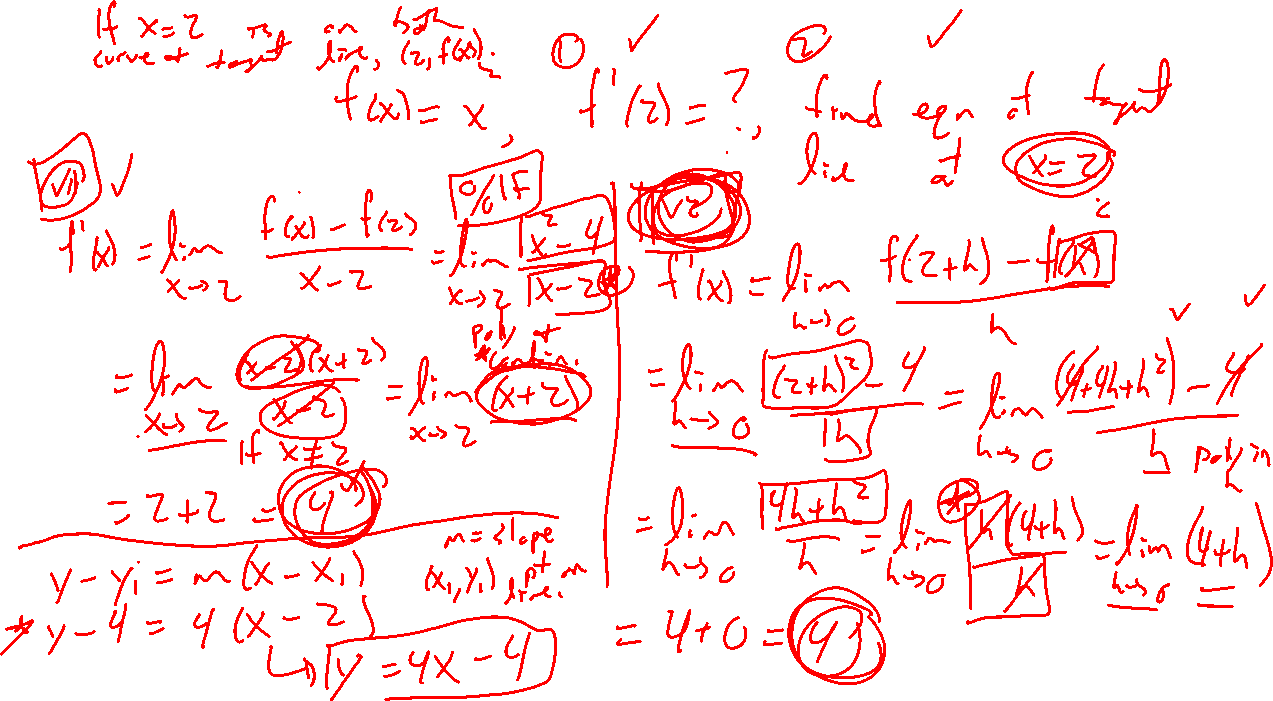 If x = 2 is on both
curve at tangent line, (2, f(x)).
① ✓ ② ✓
f(x) = x², f'(2) = ?, find eqn of tangent
line at x = 2
√1 ✓
f'(x) = lim x→2 (f(x) − f(2))/(x − 2) = lim x→2 (x² − 4)/(x − 2) 0/0 IF
= lim x→2 (x−2)(x+2)/(x−2) = lim x→2 (x+2)
If x ≠ 2
poly at
* contin.
= 2 + 2 = 4
y − y₁ = m(x − x₁)
m = slope
(x₁, y₁) pt on line.
* y − 4 = 4(x − 2)
↳ y = 4x − 4
√2
f'(x) = lim h→0 (f(2+h) − f(x))/h
= lim h→0 ((2+h)² − 4)/h = lim h→0 ((4+4h+h²) − 4)/h ✓ ✓
poly in h
= lim h→0 (4h+h²)/h = lim h→0 * h(4+h)/h = lim h→0 (4+h)
= 4 + 0 = 4